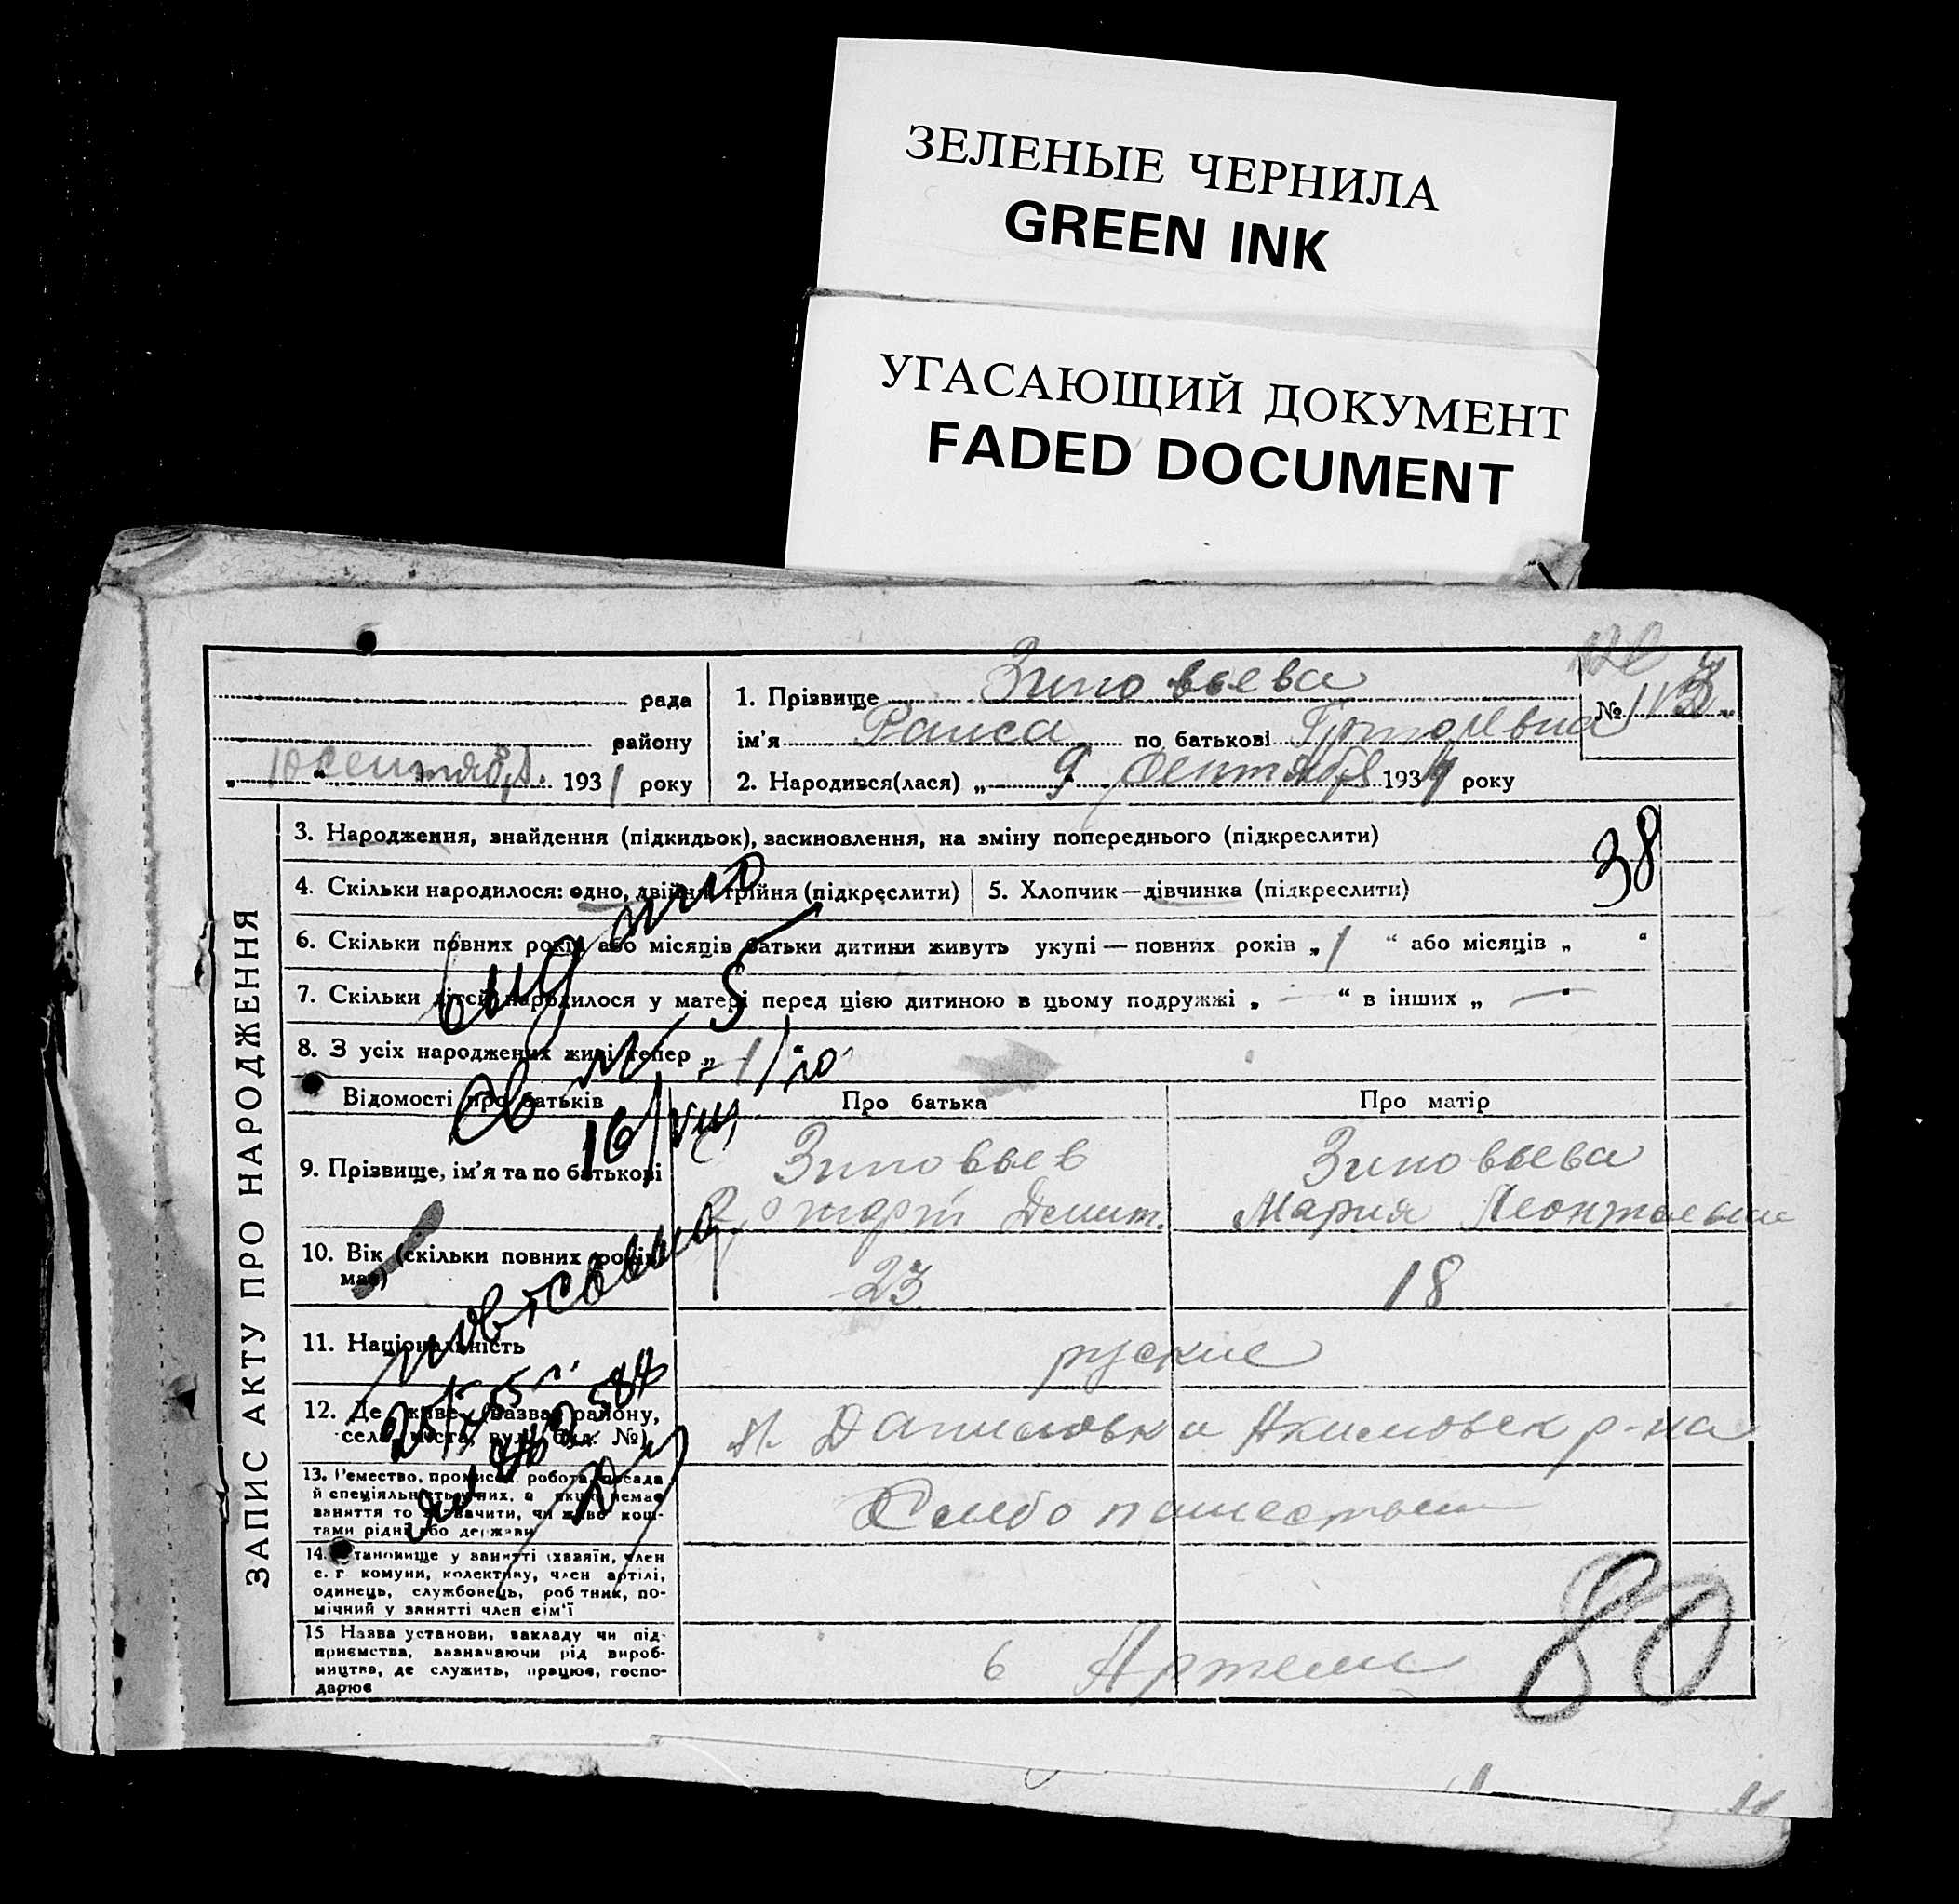 ЗЕЛЕНЫЕ ЧЕРНИЛА
GREEN INK
УГАСАЮЩИЙ ДОКУМЕНТ
FADED DOCUMENT
ЗАПИС АКТУ ПРО НАРОДЖЕННЯ
рада
району
„10“ сентября. 1931 року
1. Прізвище Зиновьева
№
ім'я Раиса по батькові
2. Народився(лася) „ 9 сентября 1931 року
3. Народження, знайдення (підкидьок), засиновлення, на зміну попереднього (підкреслити)
38
4. Скільки народилося: одно, двійня, трійня (підкреслити)
5. Хлопчик — дівчинка (підкреслити)
6. Скільки повних років або місяців батьки дитини живуть укупі — повних років „ 1 “ або місяців „ “
7. Скільки дітей народилося у матері перед цією дитиною в цьому подружжі „ — “ в інших „ — “
8. З усіх народжених живі тепер „
Відомості про батьків
Про батька
Про матір
9. Прізвище, ім'я та по батькові
Зиновьев
Демит.
Зиновьева
Мария Леонтьевна
10. Вік (скільки повних років має)
23
18
11. Національність
руские
12. Де живе (назва району, села, міста, вул., буд. №)
Даниловка Акимовск р-на
13. Ремество, промисел, робота, посада
й спеціяльність у них, а якщо немає
заняття то зазначити, чи живе кош-
тами рідні або держави
14. Становище у занятті (хазяїн, член
с. г. комуни, колективу, член артілі,
одинець, службовець, робітник, по-
мічний у занятті член сім'ї
15 Назва установи, закладу чи під-
приємства, зазначаючи рід вироб-
ництва, де служить, працює, госпо-
дарює
в Артели
80
выдано
св
16/VIII